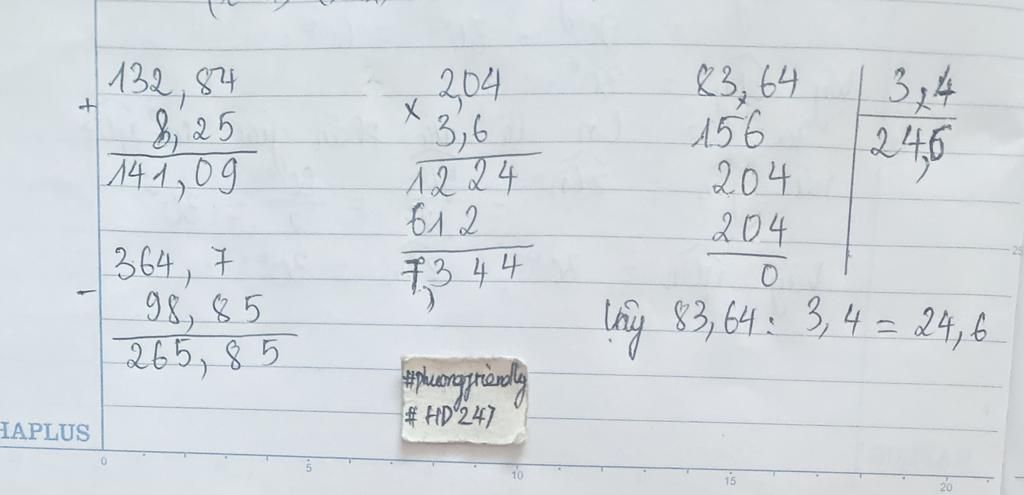 132,84
+
8,25
141,09
364,7
-
98,85
265,85
2,04
x
3,6
1224
612
7,344
83,64
3,4
156
24,6
204
204
0
Vậy 83,64 : 3,4 = 24,6
#phuongfriendly
# HD 247
HAPLUS
0 5 10 15 20
25